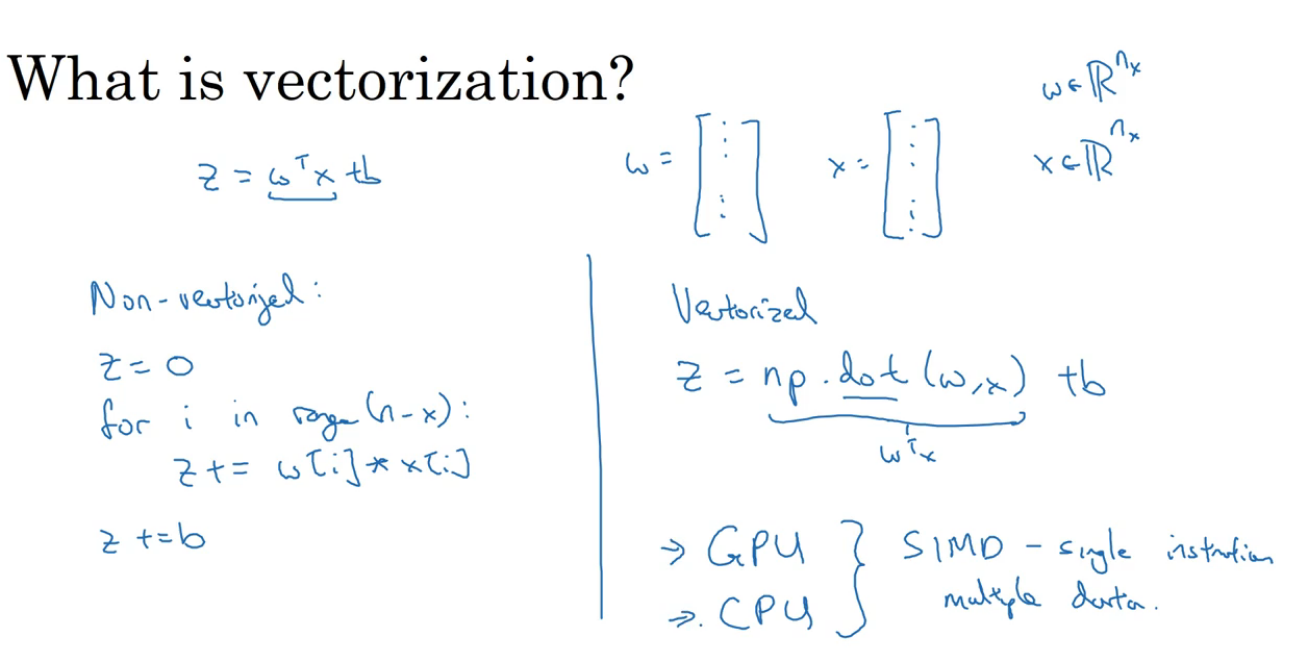 What is vectorization?
z = wᵀx + b
w = [⋮ ⋮]
x = [⋮ ⋮]
w ∈ ℝⁿˣ
x ∈ ℝⁿˣ
Non-vectorized:
z = 0
for i in range(n-x):
z += w[i] * x[i]
z += b
Vectorized
z = np.dot(w,x) + b
wᵀx
→ GPU
→ CPU
} SIMD - single instruction
multiple data.